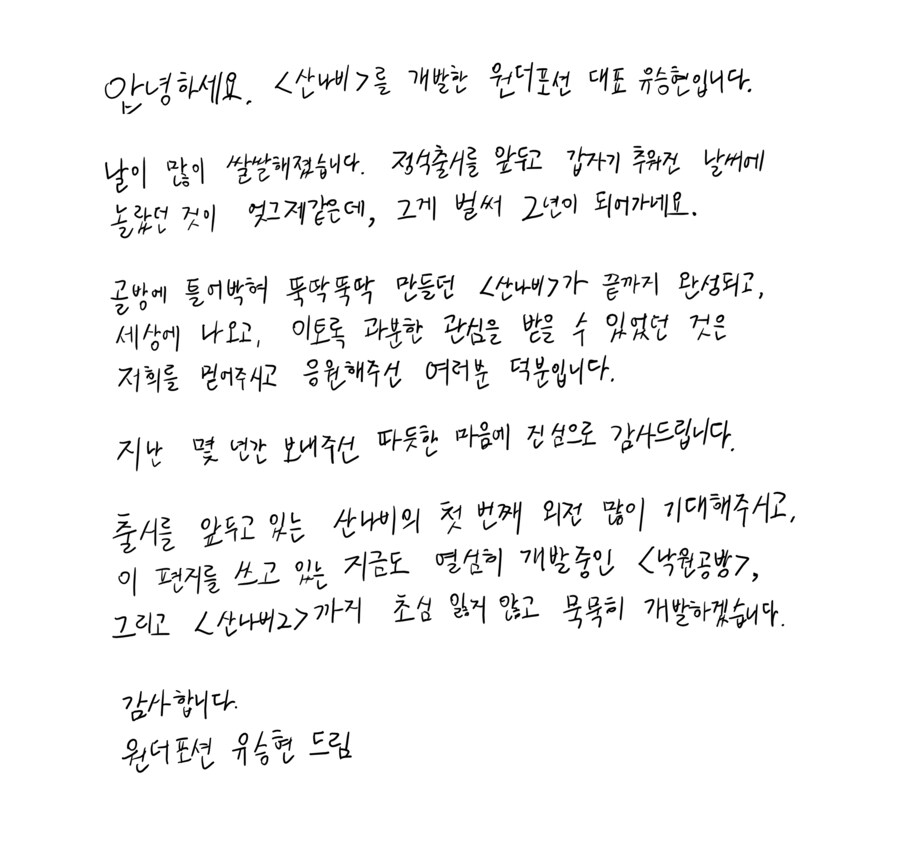 안녕하세요. <산나비>를 개발한 원더포션 대표 유승현입니다.
날이 많이 쌀쌀해졌습니다. 정식출시를 앞두고 갑자기 추워진 날씨에
놀랐던 것이 엊그제같은데, 그게 벌써 2년이 되어가네요.
골방에 틀어박혀 뚝딱뚝딱 만들던 <산나비>가 끝까지 완성되고,
세상에 나오고, 이토록 과분한 관심을 받을 수 있었던 것은
저희를 믿어주시고 응원해주신 여러분 덕분입니다.
지난 몇 년간 보내주신 따듯한 마음에 진심으로 감사드립니다.
출시를 앞두고 있는 산나비의 첫 번째 외전 많이 기대해주시고,
이 편지를 쓰고 있는 지금도 열심히 개발중인 <낙원공방>,
그리고 <산나비2>까지 초심 잃지 않고 묵묵히 개발하겠습니다.
감사합니다.
원더포션 유승현 드림